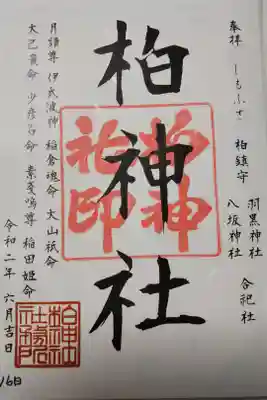 奉拝 しもふさ 柏鎮守
羽黒神社
八坂神社
合祀社
柏神社
柏神社印
月讀尊 伊氐波神 稲倉魂命 大山祇命
大己貴命 少彦名命 素戔嗚尊 稲田姫命
令和二年 六月吉日
16日